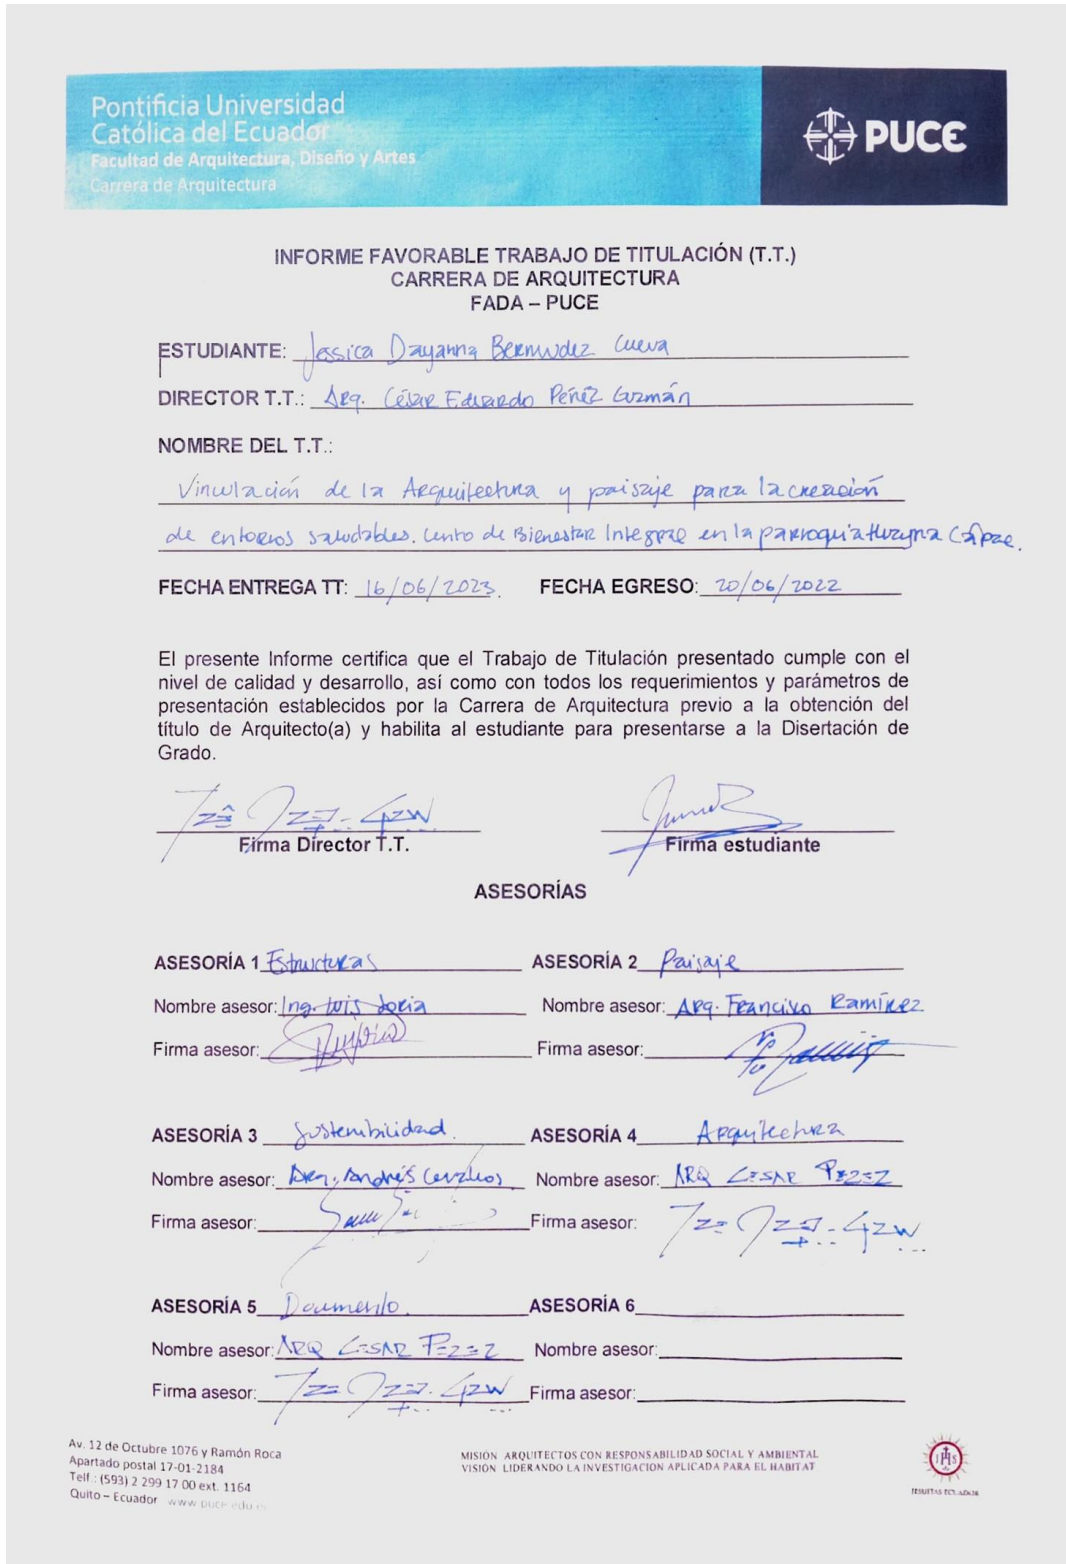 Pontificia Universidad
Católica del Ecuador
Facultad de Arquitectura, Diseño y Artes
Carrera de Arquitectura
PUCE
INFORME FAVORABLE TRABAJO DE TITULACIÓN (T.T.)
CARRERA DE ARQUITECTURA
FADA – PUCE
ESTUDIANTE: Jessica Dayanna Bermudez Cueva
DIRECTOR T.T.: Arq. César Eduardo Peréz Guzmán
NOMBRE DEL T.T.:
Vinculación de la Arquitectura y paisaje para la creación
de entornos saludables. Centro de Bienestar Integral en la parroquia Huayna Cápac.
FECHA ENTREGA TT: 16/06/2023. FECHA EGRESO: 20/06/2022
El presente Informe certifica que el Trabajo de Titulación presentado cumple con el
nivel de calidad y desarrollo, así como con todos los requerimientos y parámetros de
presentación establecidos por la Carrera de Arquitectura previo a la obtención del
título de Arquitecto(a) y habilita al estudiante para presentarse a la Disertación de
Grado.
Firma Director T.T. Firma estudiante
ASESORÍAS
ASESORÍA 1 Estructuras ASESORÍA 2 Paisaje
Nombre asesor: Ing. Luis Soria Nombre asesor: Arq. Francisco Ramírez
Firma asesor: Firma asesor:
ASESORÍA 3 Sostenibilidad. ASESORÍA 4 Arquitectura
Nombre asesor: Arq. Andrés Cevallos Nombre asesor: ARQ CESAR PEREZ
Firma asesor: Firma asesor:
ASESORÍA 5 Documento. ASESORÍA 6
Nombre asesor: ARQ CESAR PEREZ Nombre asesor:
Firma asesor: Firma asesor:
Av. 12 de Octubre 1076 y Ramón Roca
Apartado postal 17-01-2184
Telf.: (593) 2 299 17 00 ext. 1164
Quito – Ecuador www.puce.edu.ec
MISIÓN ARQUITECTOS CON RESPONSABILIDAD SOCIAL Y AMBIENTAL
VISIÓN LIDERANDO LA INVESTIGACION APLICADA PARA EL HABITAT
IHS
JESUITAS ECUADOR